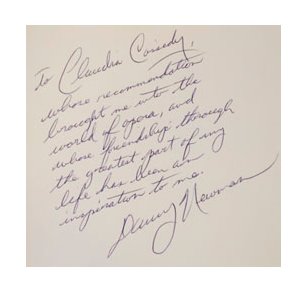 To Claudia Cassidy,
whose recommendation
brought me into the
world of opera, and
whose friendship through
the greatest part of my
life has been an
inspiration to me.
Danny Newman